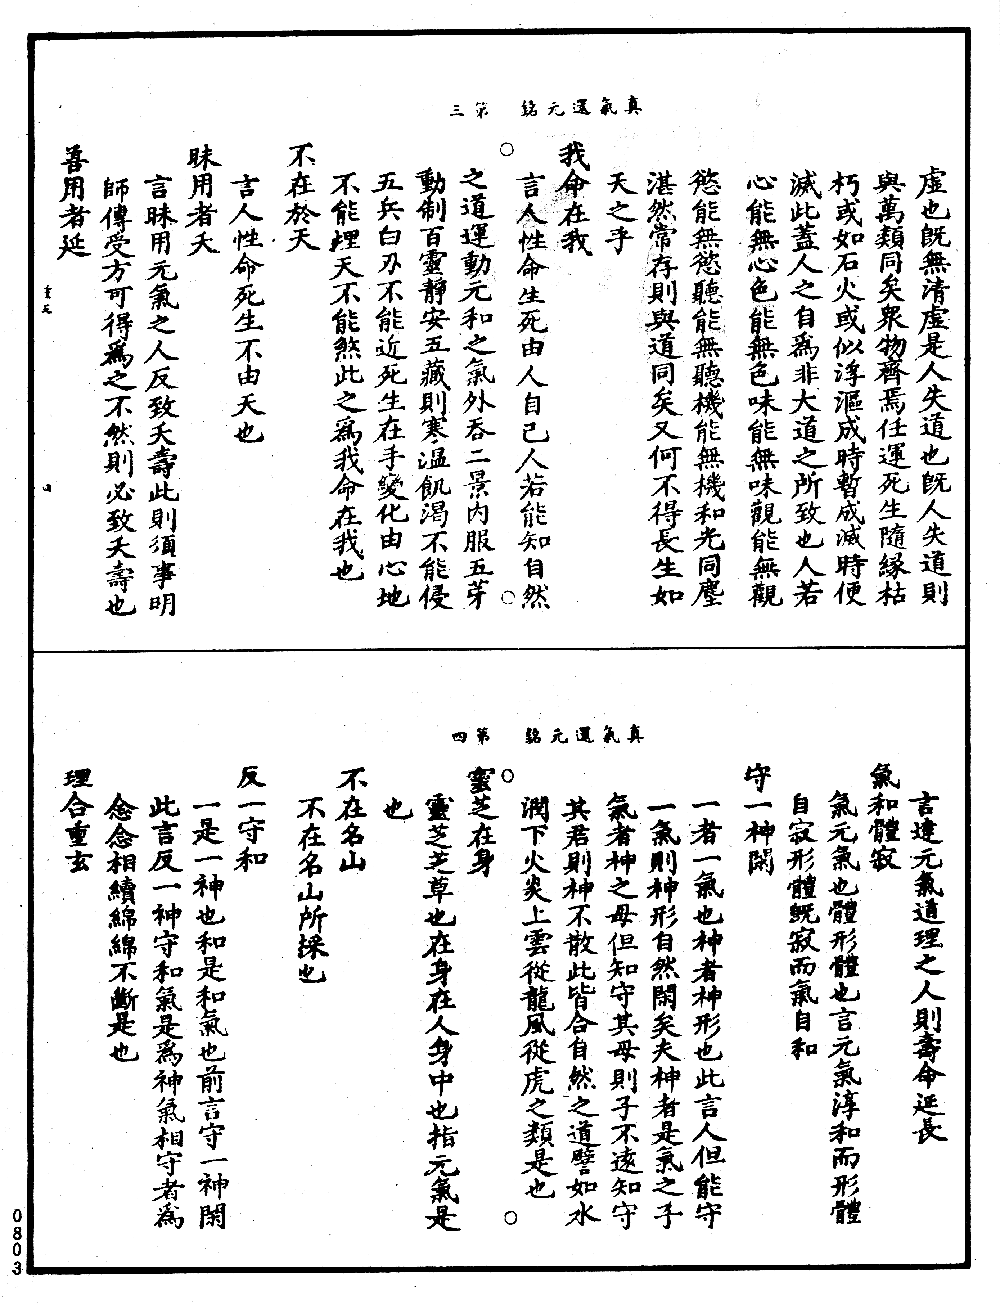 真氣還元銘　第三
虛也既無清虛是人失道也既人失道則
與萬類同矣眾物齊焉任運死生隨緣枯
朽或如石火或似浮漚成時暫成滅時便
滅此蓋人之自為非大道之所致也人若
心能無心色能無色味能無味觀能無觀
慾能無慾聽能無聽機能無機和光同塵
湛然常存則與道同矣又何不得長生如
天之乎
我命在我
言人性命生死由人自己人若能知自然
之道運動元和之氣外吞二景內服五芽
動制百靈靜安五藏則寒溫飢渴不能侵
五兵白刃不能近死生在手變化由心地
不能埋天不能煞此之為我命在我也
不在於天
言人性命死生不由天也
昧用者夭
言昧用元氣之人反致夭壽此則須事明
師傳受方可得為之不然則必致夭壽也
善用者延
四
真氣還元銘　第四
言達元氣道理之人則壽命延長
氣和體寂
氣元氣也體形體也言元氣淳和而形體
自寂形體既寂而氣自和
守一神閑
一者一氣也神者神形也此言人但能守
一氣則神形自然閑矣夫神者是氣之子
氣者神之母但知守其母則子不遠知守
其君則神不散此皆合自然之道譬如水
潤下火炎上雲從龍風從虎之類是也
靈芝在身
靈芝芝草也在身在人身中也指元氣是
也
不在名山
不在名山所採也
反一守和
一是一神也和是和氣也前言守一神閑
此言反一神守和氣是為神氣相守者為
念念相續綿綿不斷是也
理合重玄
0803